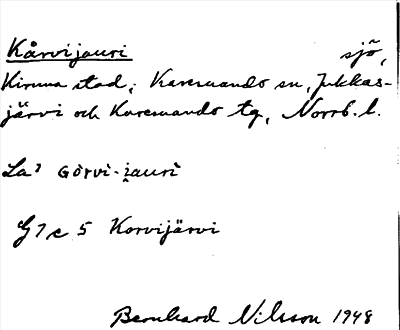 Kårvijauri sjö,
Kiruna stad; Karesuando sn, Jukkas-
järvi och Karesuando tg, Norrb. l.
La? Gòrvì-i̯aurì
G7c 5 Korvijärvi
Bernhard Nilsson 1948